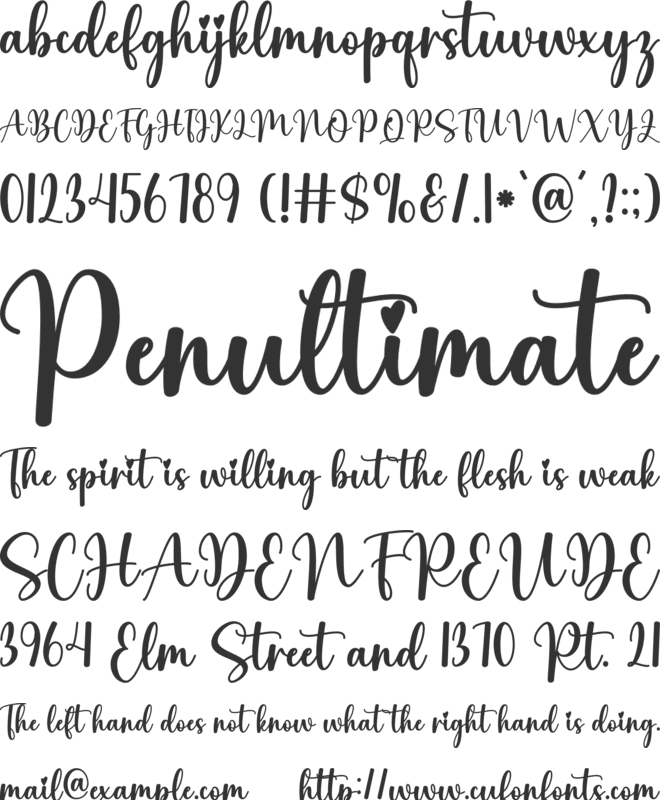 abcdefghijklmnopqrstuvwxyz
ABCDEFGHIJKLMNOPQRSTUVWXYZ
0123456789 (!#$%&/.|*`@´,?:;)
Penultimate
The spirit is willing but the flesh is weak
SCHADENFREUDE
3964 Elm Street and 1370 Rt. 21
The left hand does not know what the right hand is doing.
mail@example.com http://www.culonfonts.com